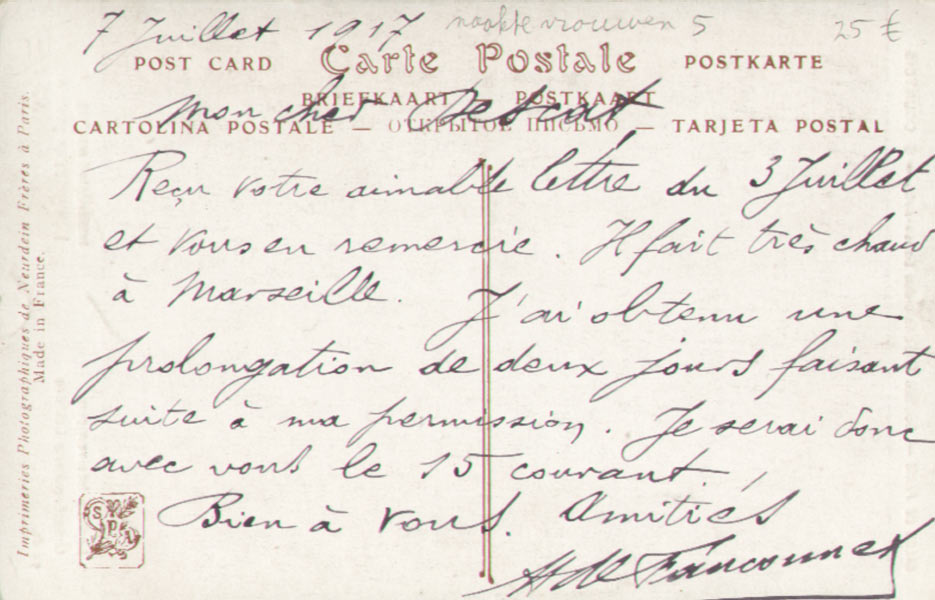 7 Juillet 1917 naakte vrouwen 5 25 €
POST CARD Carte Postale POSTKARTE
BRIEFKAART — POSTKAART
Mon cher
CARTOLINA POSTALE — ОТКРЫТОЕ ПИСЬМО — TARJETA POSTAL
Reçu votre aimable lettre du 3 Juillet
et vous en remercie. Il fait très chaud
à Marseille. J'ai obtenu une
prolongation de deux jours faisant
suite à ma permission. Je serai donc
avec vous le 15 courant.
Bien à vous. Amitiés
Imprimeries Photographiques de Neurdein Frères à Paris.
Made in France.